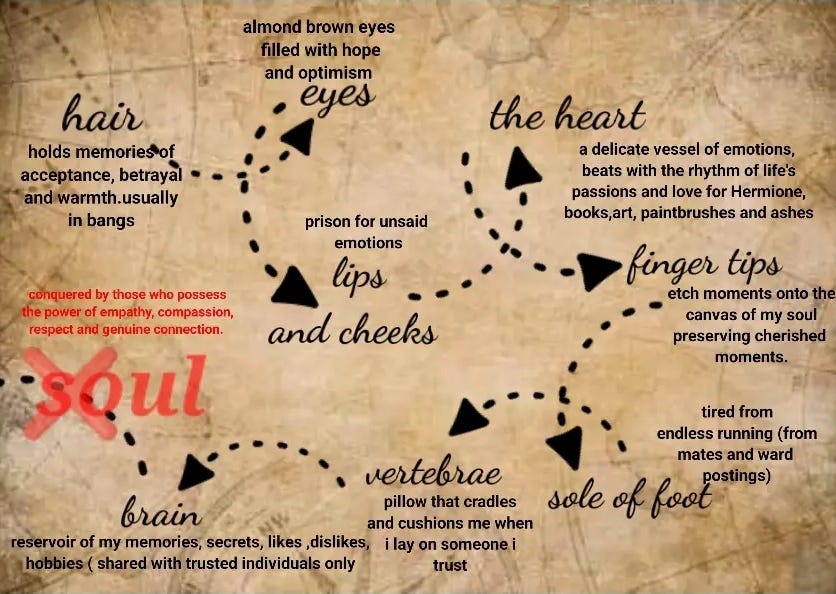 almond brown eyes
filled with hope
and optimism
eyes
hair
holds memories of
acceptance, betrayal
and warmth.usually
in bangs
the heart
a delicate vessel of emotions,
beats with the rhythm of life's
passions and love for Hermione,
books,art, paintbrushes and ashes
prison for unsaid
emotions
lips
and cheeks
finger tips
etch moments onto the
canvas of my soul
preserving cherished
moments.
conquered by those who possess
the power of empathy, compassion,
respect and genuine connection.
soul
tired from
endless running (from
mates and ward
postings)
sole of foot
vertebrae
pillow that cradles
and cushions me when
i lay on someone i
trust
brain
reservoir of my memories, secrets, likes ,dislikes,
hobbies ( shared with trusted individuals only
NW